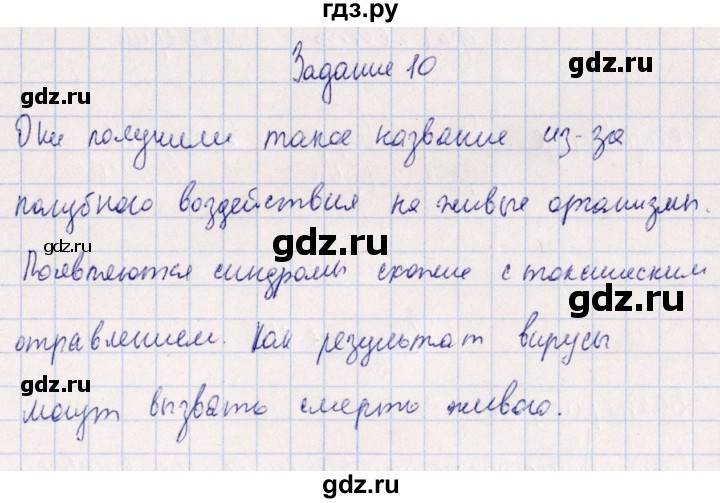 гдз.ру
gdz.ru
gdz.ru
Задание 10
gdz.ru
gdz.ru
Они получили такое название из-за
пагубного воздействия на живые организмы.
gdz.ru
gdz.ru
Появляются синдромы схожие с токсическим
gdz.ru
отравлением. Как результат вирусы
gdz.ru
gdz.ru
могут вызвать смерть живого.
gdz.ru
gdz.ru